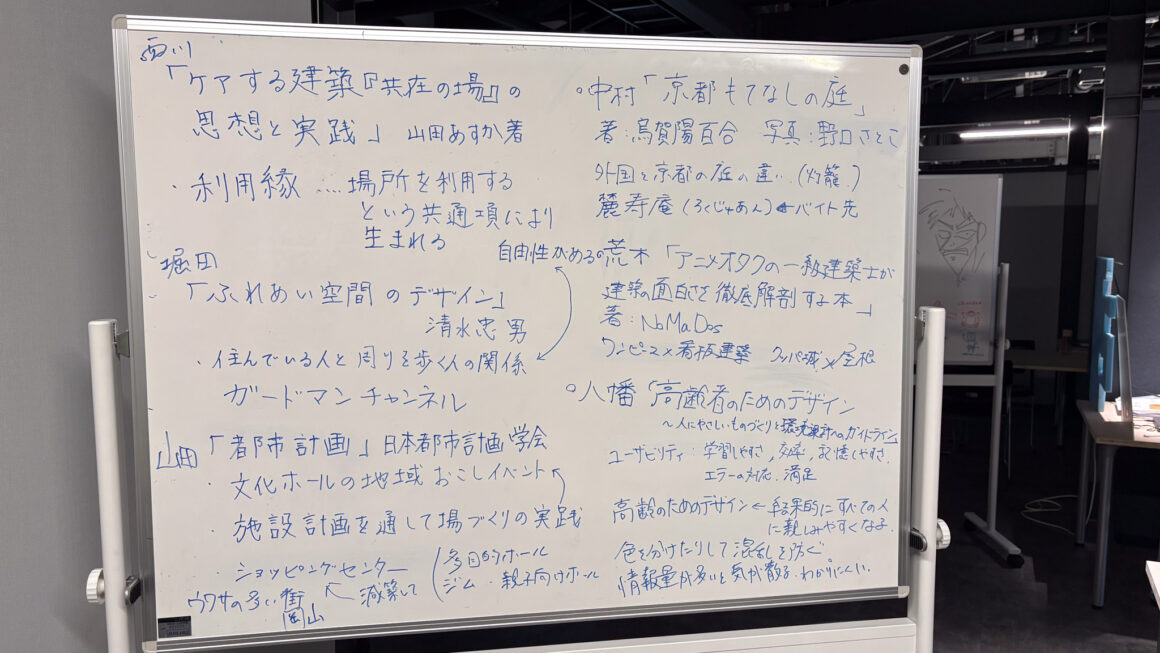 西川
「ケアする建築『共在の場』の
思想と実践」 山田あすか著
・利用縁 ‥‥場所を利用する
という共通項により
生まれる
堀田
「ふれあい空間のデザイン」
清水忠男
・住んでいる人と周りを歩く人の関係
ガードマンチャンネル
山田 「都市計画」日本都市計画学会
・文化ホールの地域おこしイベント
・施設計画を通して場づくりの実践
・ショッピングセンター
← 減築して
多目的ホール
ジム・親子向けホール
ウワサの多い街
岡山
○中村「京都もてなしの庭」
著:烏賀陽百合 写真:野口さとこ
外国と京都の庭の違い(灯籠)
麓寿庵(ろくじゅあん)←バイト先
自由性がある
○荒木「アニメオタクの一級建築士が
建築の面白さを徹底解剖する本」
著:NoMaDoS
ワンピース×看板建築 クッパ城×屋根
○八幡「高齢者のためのデザイン
~人にやさしいものづくりと環境設計へのガイドライン」
ユーザビリティ:学習しやすさ,効率,記憶しやすさ,
エラーの対応,満足
高齢のためのデザイン←結果的にすべての人
に親しみやすくなる.
色を分けたりして混乱を防ぐ.
情報量が多いと気が散る.わかりにくい.